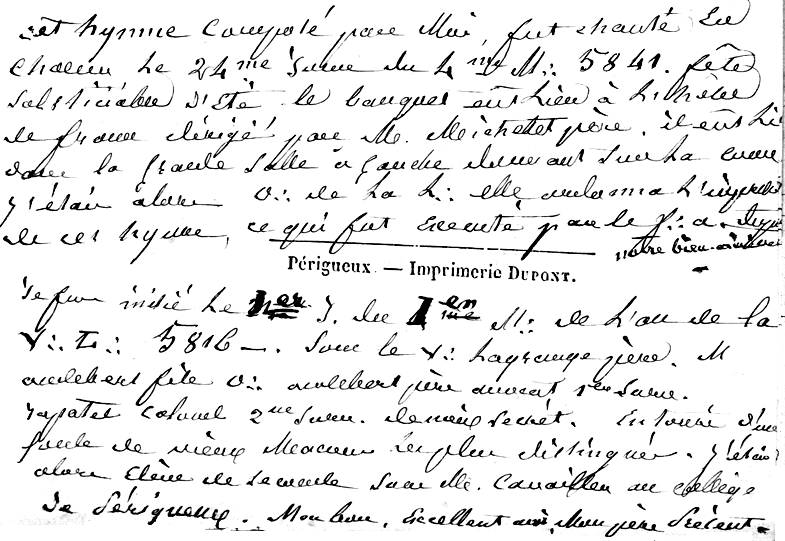 cet hymne Composé par Moi, fut chanté En
Choeur Le 24me Jour du 4me M∴ 5841. fête
Solsticiale D'Eté le banquet eut Lieu à L'hôtel
de france dirigé par M. Meichelet père, il eut Li
dans la Grande Salle à Gauche donnant Sur La cour
J'étais alors O∴ de La L∴ elle ordonna L'impression
de cet hymne, ce qui fut Executé par le f∴ a. Dupon
notre bien-aimé
Périgueux. — Imprimerie DUPONT.
Je fus initié Le 1er J. Du 1er M∴ de L'an de la
V∴ L∴ 5816 —. Sous le V∴ Lagrange père. M
audebert fils O∴ audebert père avocat 1er Surv.
Colonel 2me Surv. Secrét. Entouré d'une
foule de vieux Macons Les plus distingués. J'étais
alors Elève de Seconde Sous M. Cavaillon au collège
De Périgueux. Mon bon, Excellent ami, Mon père Présent.